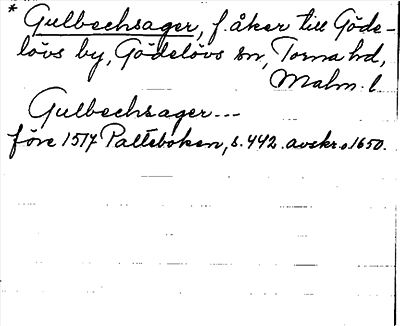 * Gulbechsager, f. åker till Göde-
lövs by, Gödelövs sn, Torna hd,
Malm. l.
Gulbechsager---
före 1517 Palteboken, s. 442. avskr. o 1650.